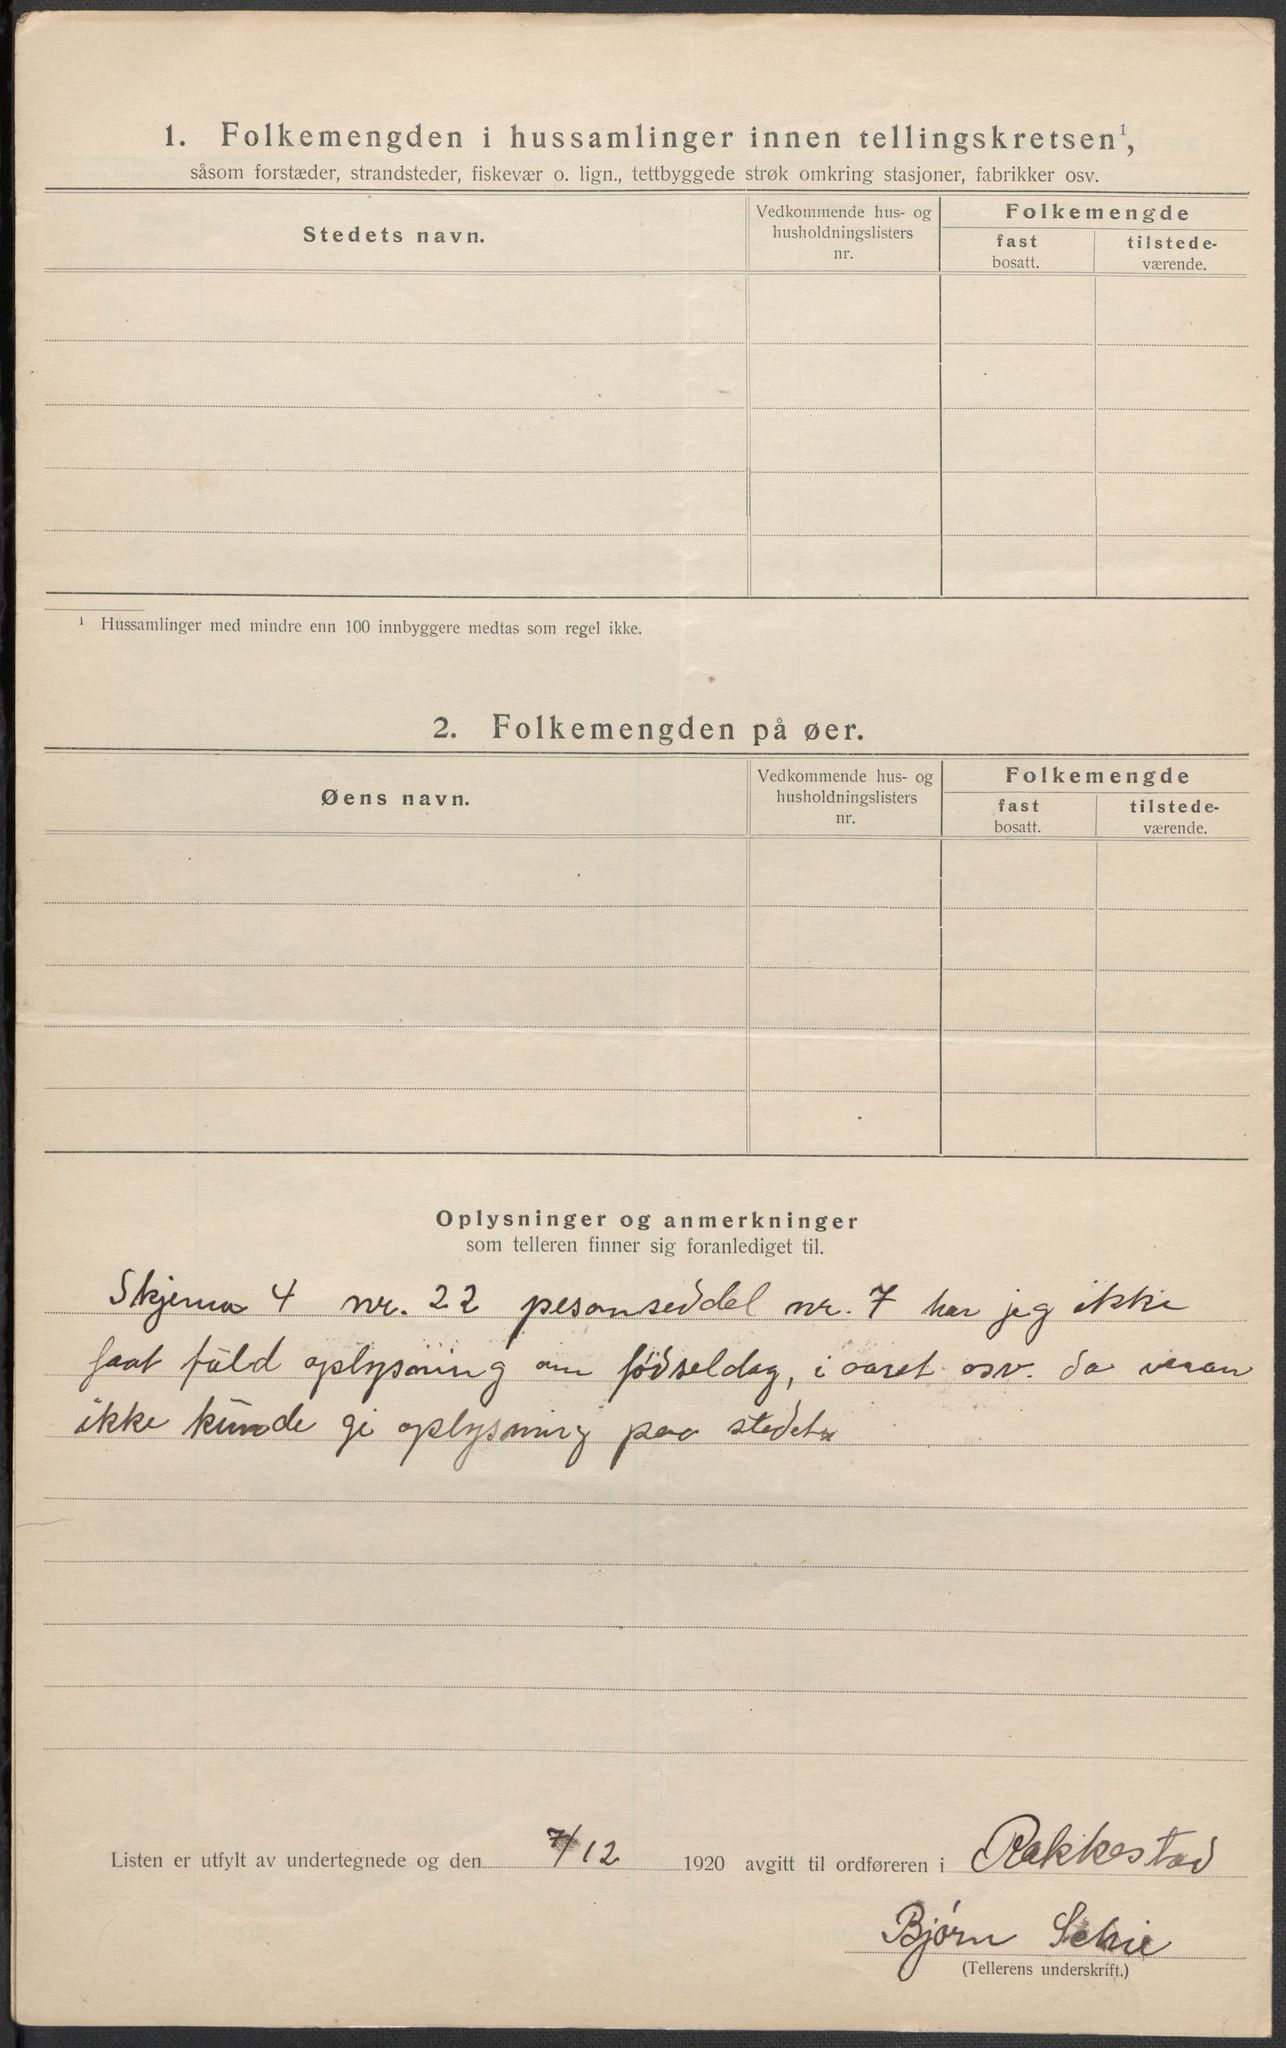 1. Folkemengden i hussamlinger innen tellingskretsen¹,
såsom forstæder, strandsteder, fiskevær o. lign., tettbyggede strøk omkring stasjoner, fabrikker osv.
Stedets navn.
Vedkommende hus- og
husholdningslisters
nr.
Folkemengde
fast
bosatt.
tilstede-
værende.
¹ Hussamlinger med mindre enn 100 innbyggere medtas som regel ikke.
2. Folkemengden på øer.
Øens navn.
Vedkommende hus- og
husholdningslisters
nr.
Folkemengde
fast
bosatt.
tilstede-
værende.
Oplysninger og anmerkninger
som telleren finner sig foranlediget til.
Skjema 4 nr. 22 pesonseddel nr. 7 har jeg ikke
faat fuld oplysning om fødseldag, i aaret osv. da
ikke kunde gi oplysning paa stedet
Listen er utfylt av undertegnede og den 7/12 1920 avgitt til ordføreren i Rakkestad
Bjørn Schie
(Tellerens underskrift.)